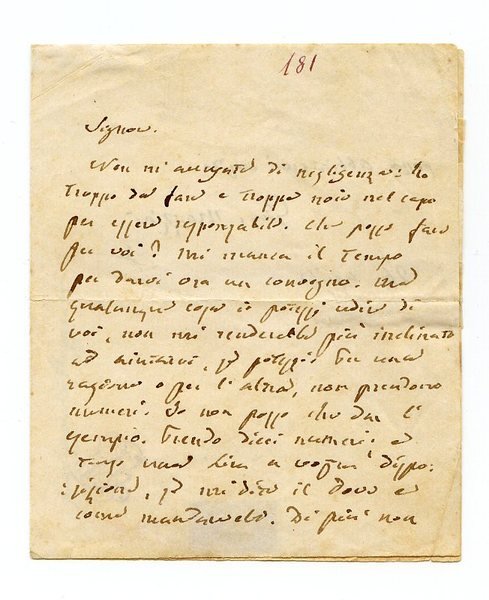 181
Signore.
Non mi accusate di negligenza: ho
troppo da fare e troppe noie nel capo
per essere responsabile. Che posso fare
per voi? Mi manca il tempo
per darvi ora un convegno. Ma
qualunque cosa io potessi udire di
voi, non mi renderebbe più inclinato
ad aiutarvi, se potessi. Per una
ragione o per l'altra, non prendono
numeri. Io non posso che dar l'
esempio. Prendo dieci numeri: e
tengo una lira a vostra dispo:
:sizione, se mi dite il dove e
come mandarvela. Di più non